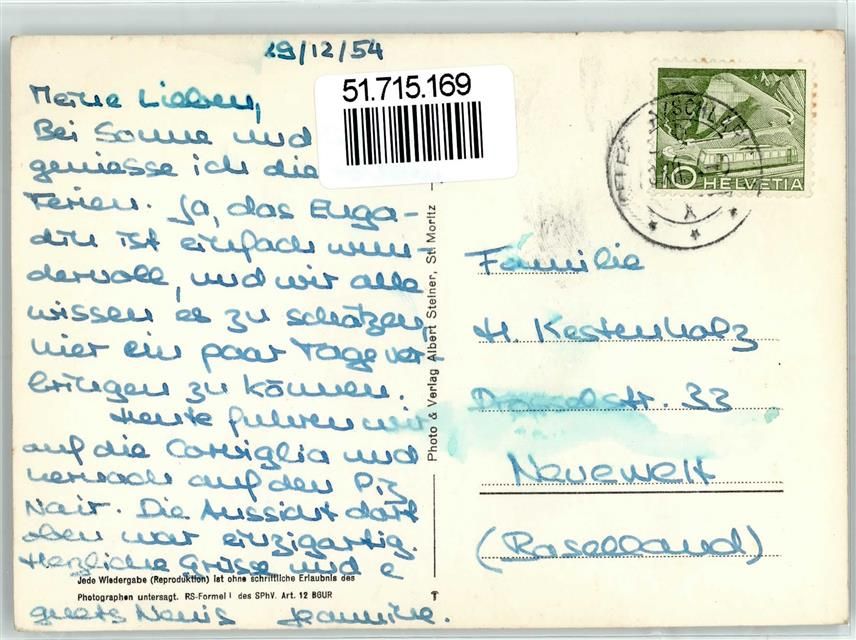 29/12/54
51.715.169
Meine Lieben,
Bei Sonne und
geniesse ich die
Ferien. Ja, das Enga-
din ist einfach wun-
dervoll, und wir alle
wissen es zu schätzen,
hier ein paar Tage ver-
bringen zu können.
Heute fuhren wir
auf die Corviglia und
hernach auf den Piz
Nair. Die Aussicht dort
oben war einzigartig.
Herzliche Grüsse und e
guets Neuis Jeannine.
Jede Wiedergabe (Reproduktion) ist ohne schriftliche Erlaubnis des
Photographen untersagt. RS-Formel I des SPhV. Art. 12 BGUR
Photo & Verlag Albert Steiner, St. Moritz
10 HELVETIA
Familie
H. Kestenholz
33
Neuewelt
(Baselland)